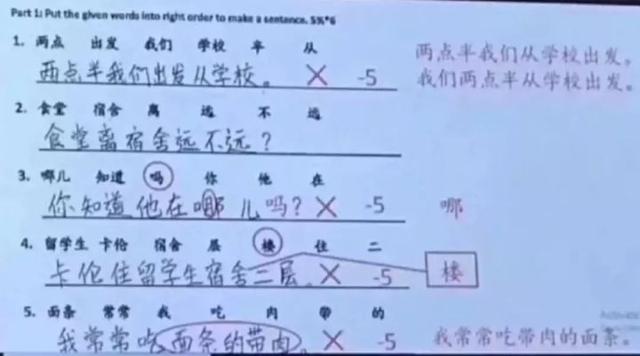 Part 1: Put the given words into right order to make a sentence. 5%*6
1. 两点 出发 我们 学校 半 从
两点半我们出发从学校。 × -5
两点半我们从学校出发。
我们两点半从学校出发。
2. 食堂 宿舍 离 远 不 远
食堂离宿舍远不远？
3. 哪儿 知道 吗 你 他 在
你知道他在哪儿吗？ × -5 哪
4. 留学生 卡伦 宿舍 层 楼 住 二
卡伦住留学生宿舍二层。 × -5 楼
5. 面条 常常 我 吃 肉 带 的
我常常吃面条的带肉。 × -5 我常常吃带肉的面条。